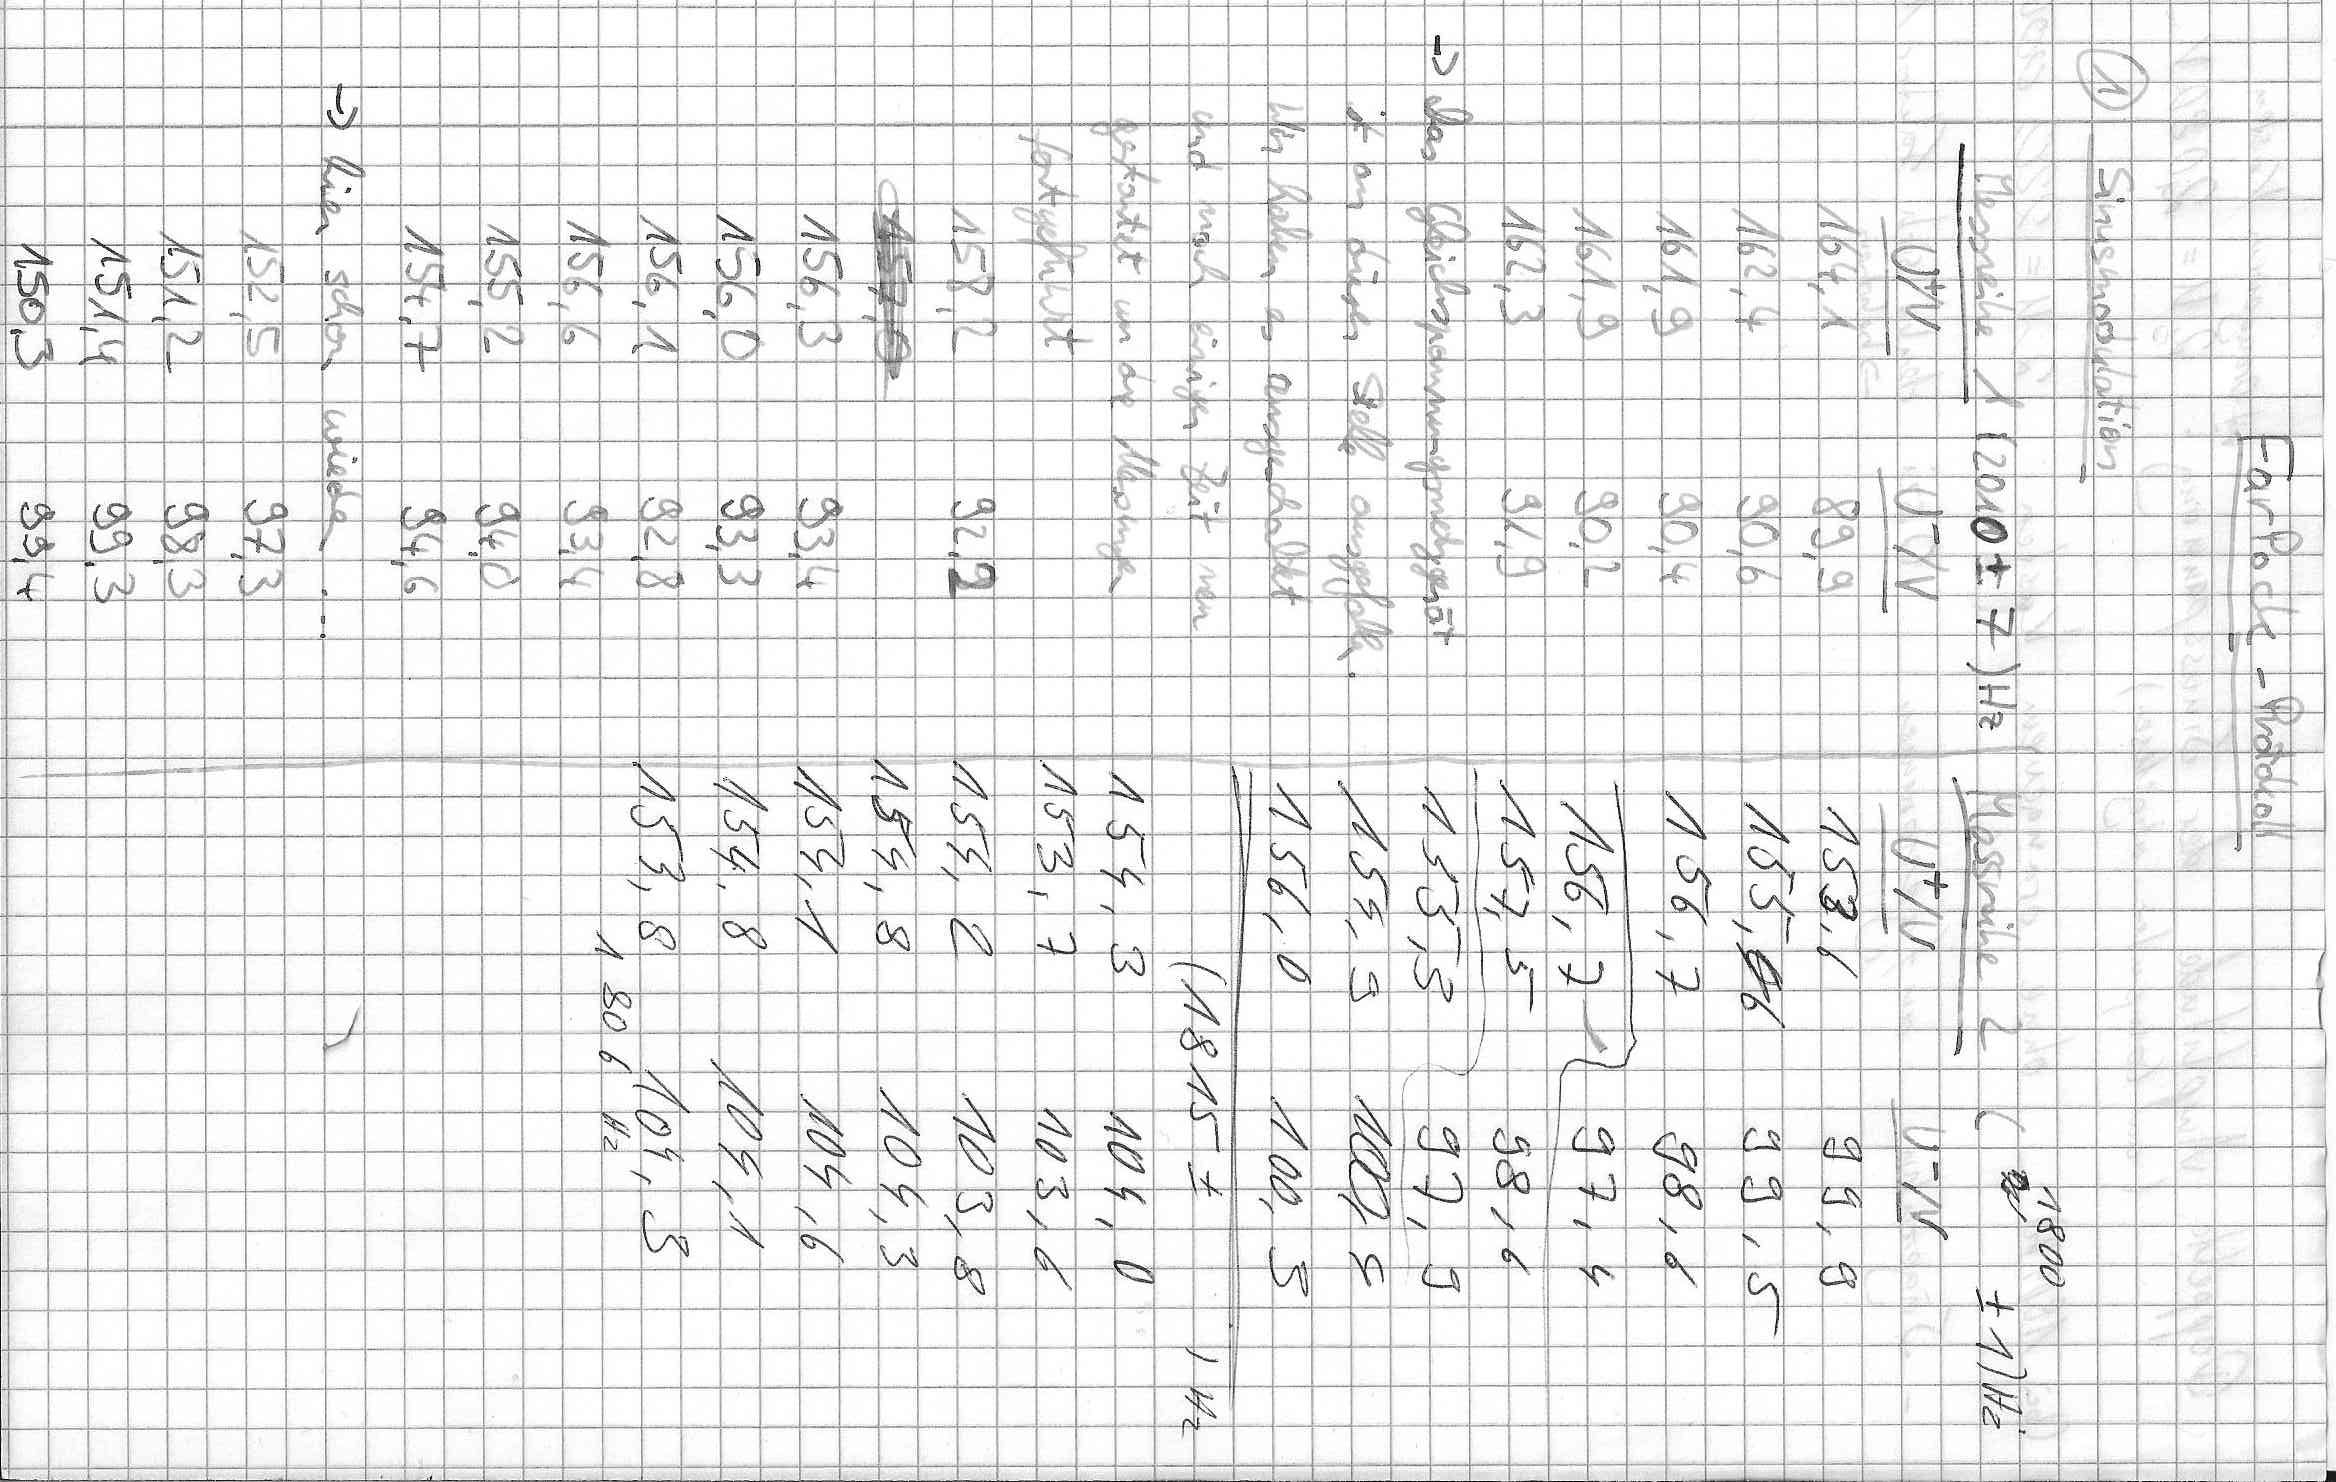 FarPock-Protokoll
① Sinusmodulation
Messreihe 1 (2010 ± 7) Hz
U⁺/V U⁻/V
164,1 89,9
162,4 90,6
161,9 90,4
161,9 90,2
162,3 91,9
-> Das Gleichspannungsnetzgerät
ist an dieser Stelle ausgefallen.
Wir haben es ausgeschaltet
und nach einiger Zeit neu
gestartet um die Messungen
fortgeführt
158,2 92,2
156,3 93,4
156,0 93,3
156,1 92,8
156,6 93,4
155,2 94,0
154,7 94,6
-> hier schon wieder ....
152,5 97,3
151,2 98,3
151,4 99,3
150,3 99,4
Messreihe 2 (1800 ± 1) Hz
U⁺/V U⁻/V
153,6 99,9
155,6 99,5
156,7 98,6
156,7 97,4
157,5 98,6
155,5 97,9
155,9
156,0 100,5
(1815 ± ) Hz
154,3 104,0
153,7 103,6
154,2 103,8
154,8 104,3
154,1 104,6
154,8 104,1
153,8 104,5
1806 Hz